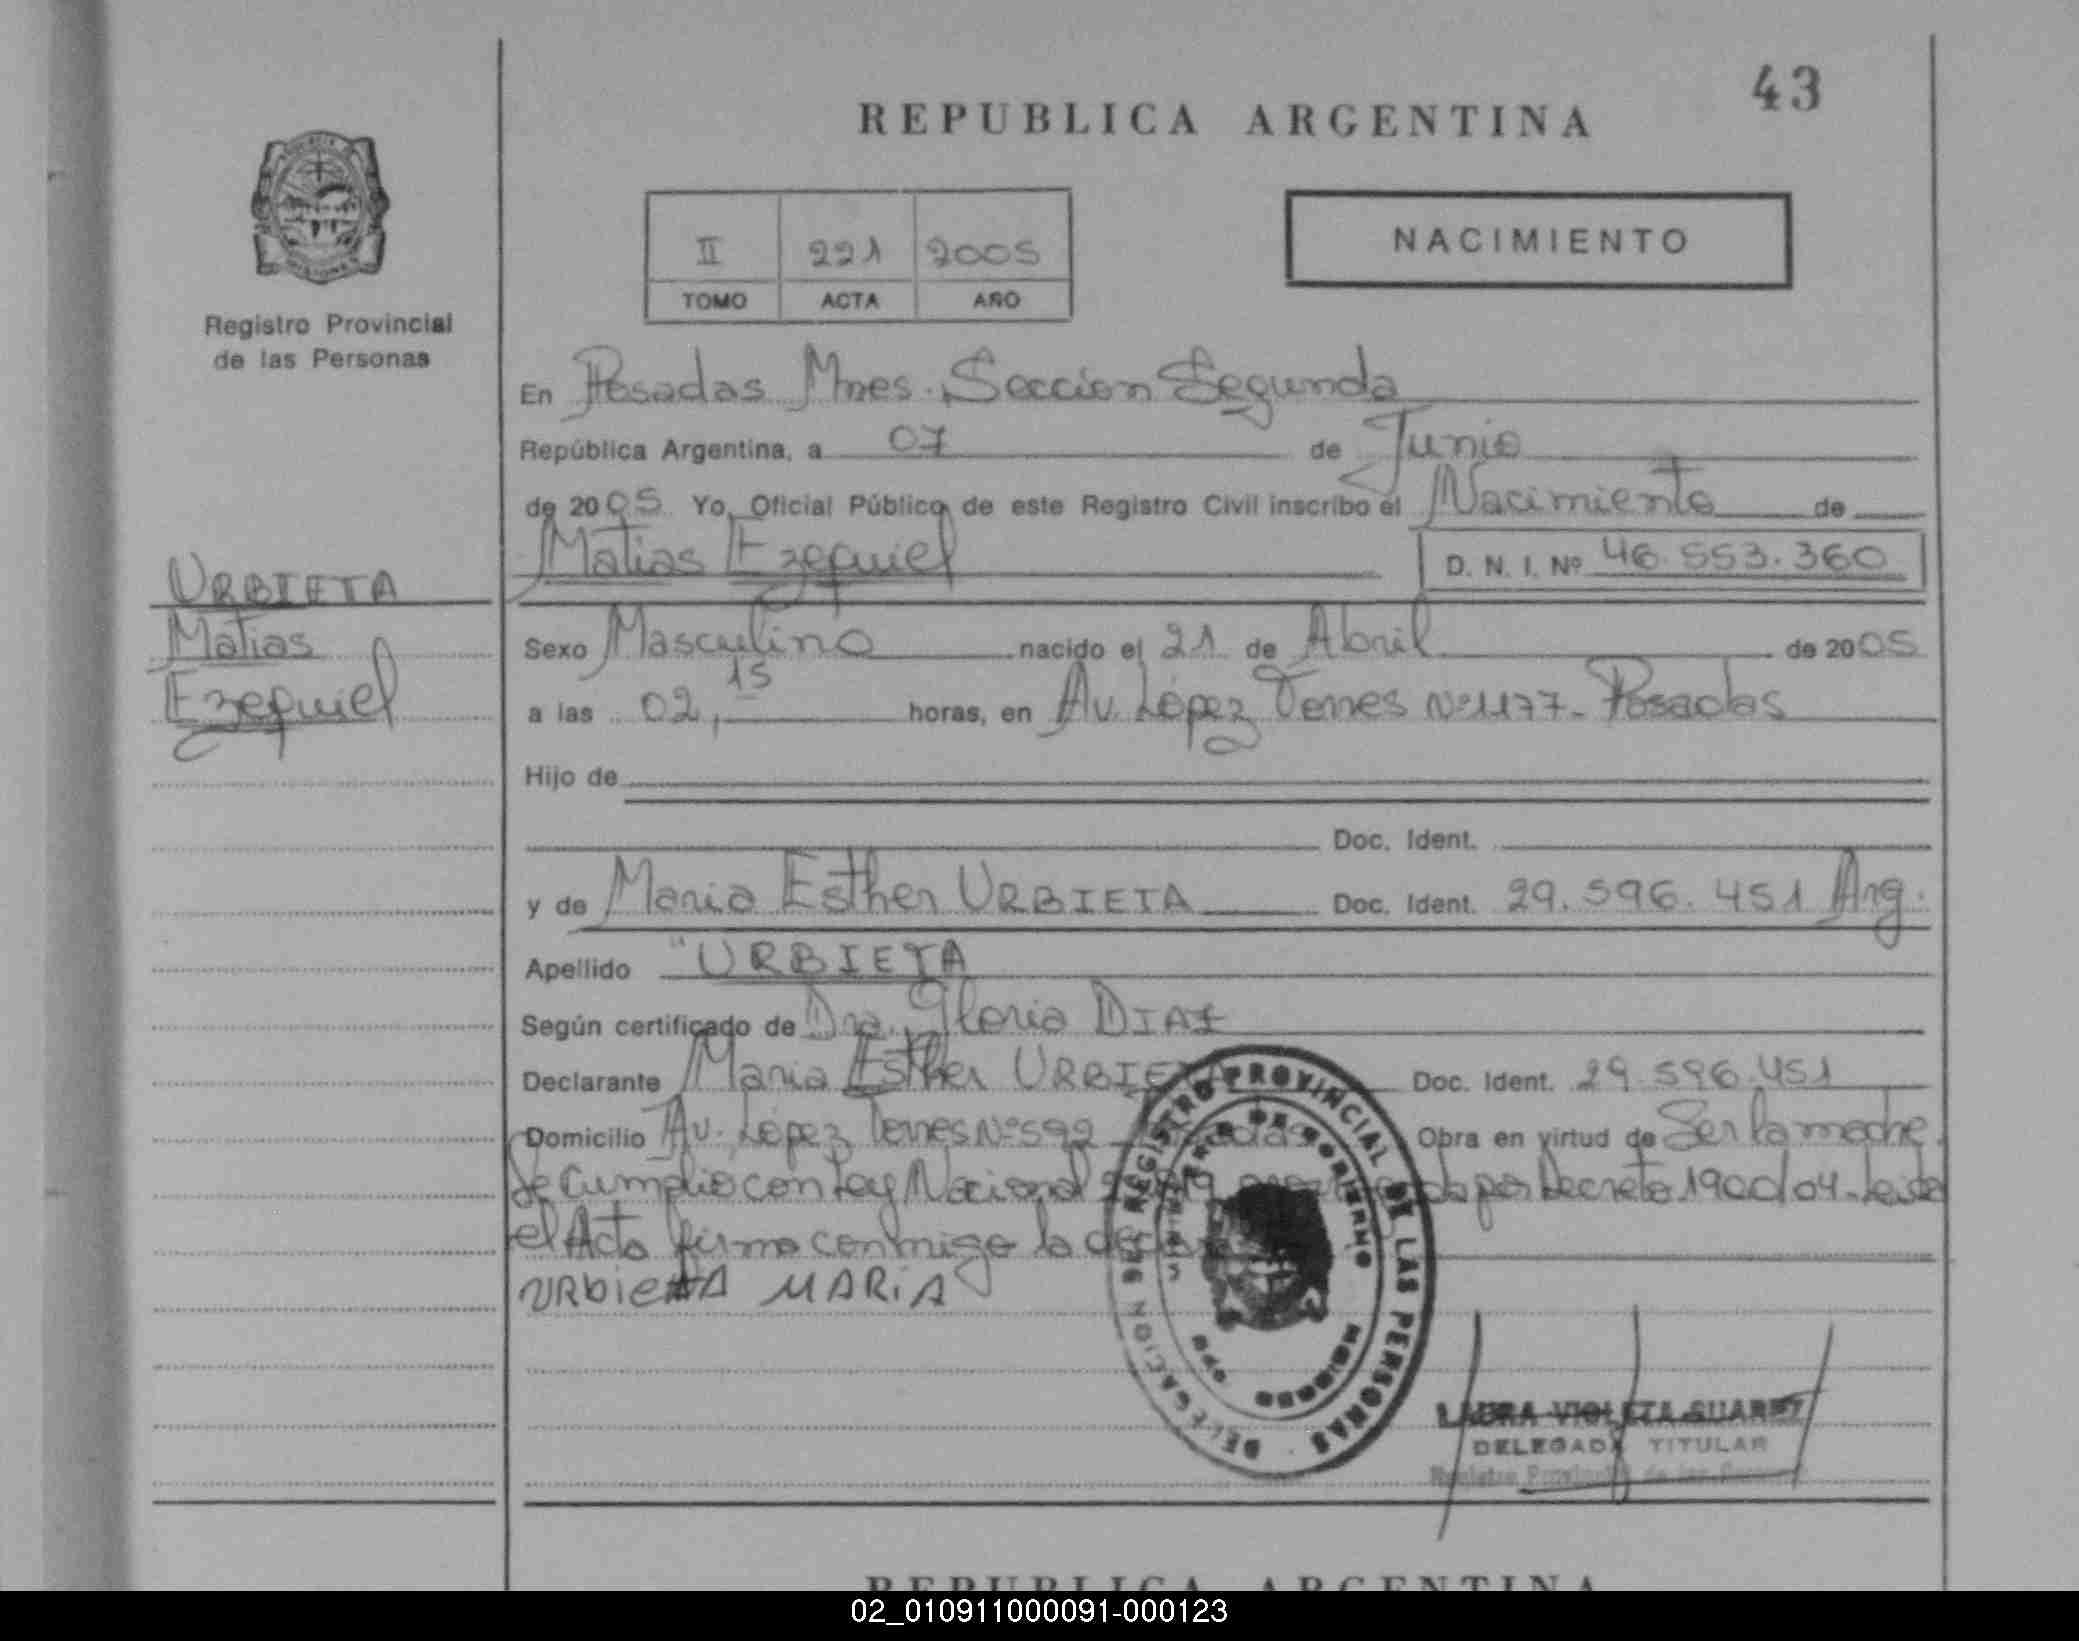 43
REPUBLICA ARGENTINA
II 221 2005
TOMO ACTA AÑO
NACIMIENTO
Registro Provincial
de las Personas
En Posadas Mnes. Sección Segunda
República Argentina, a 07 de Junio
de 2005 Yo, Oficial Público de este Registro Civil inscribo el Nacimiento de
Matias Ezequiel D. N. I. Nº 46.553.360
URBIETA
Matias
Ezequiel
Sexo Masculino nacido el 21 de Abril de 2005
a las 02,15 horas, en Av. López Torres Nº 1177- Posadas
Hijo de
Doc. Ident.
y de Maria Esther URBIETA Doc. Ident. 29.596.451 Arg.
Apellido "URBIETA
Según certificado de Dra. Gloria DIAZ
Declarante Maria Esther URBIETA Doc. Ident. 29.596.451
Domicilio Av. López Torres Nº 592 Obra en virtud de Ser la madre.
Se Cumplio con Ley Nacional por Decreto 1900/04- Leida
el Acta firma conmigo la
URbieTA MARiA
DELEGACION REGISTRO PROVINCIAL DE LAS PERSONAS
MINISTERIO DE GOBIERNO
MISIONES
LAURA VIOLETA SUAREZ
DELEGADA TITULAR
Registro Provincial de las Personas
REPUBLICA ARGENTINA
02_010911000091-000123